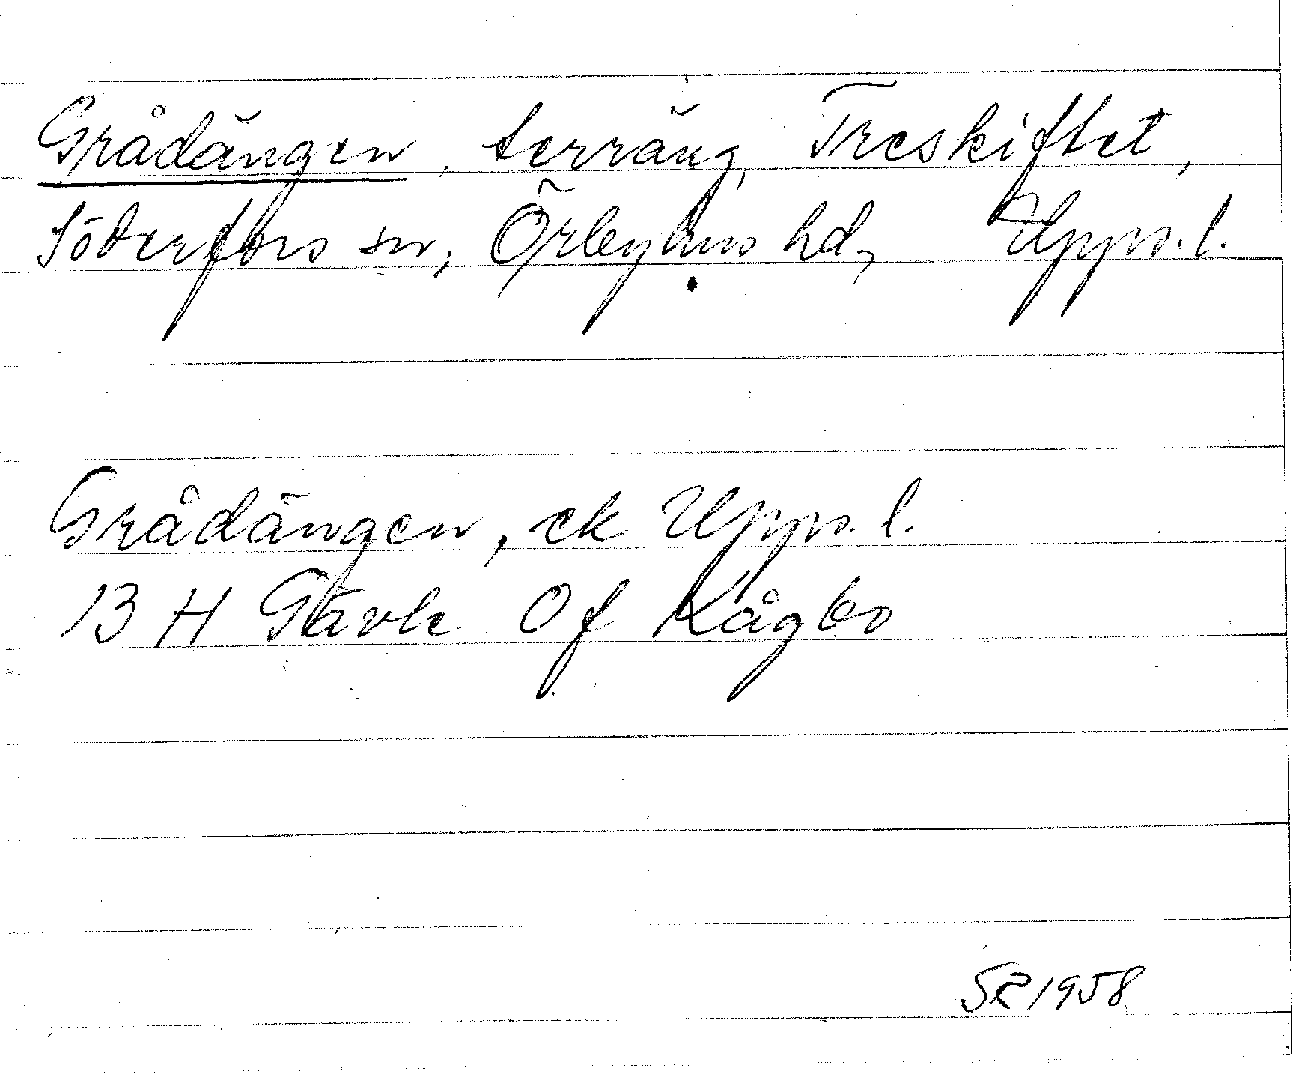 Grådängen, terräng, Treskiftet,
Söderfors sn, Örbyhus hd, Upps.l.
Grådängen, ek Upps.l.
13 H Gävle 0f Kågbo
SR 1958